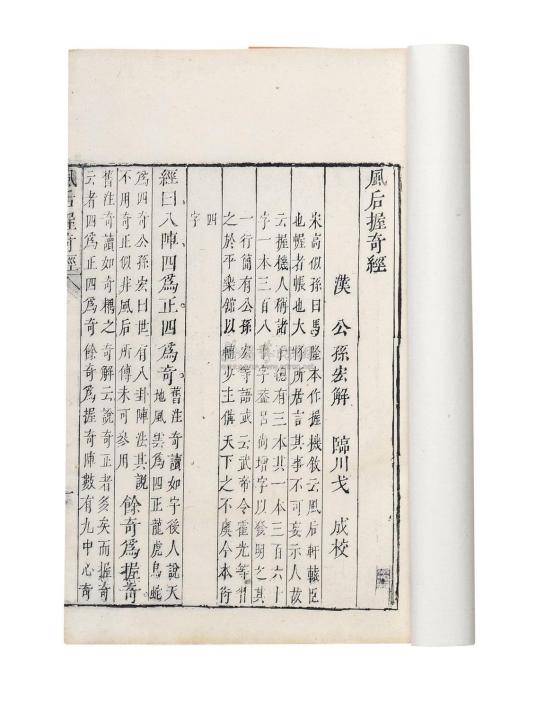 風后握奇經
漢 公孫宏解 臨川戈 成校
宋高似孫曰馬隆本作握機敘云風后軒轅臣
也幄者帳也大將所居言其事不可妄示人故
云握機人稱諸子總有三本其一本三百六十
字一本三百八十字葢呂尚增字以發明之其
一行簡有公孫宏等語武帝令霍光等習
之於平樂館以輔少主備天下之不虞今本衍
四
字
經曰八陣四爲正四爲奇
舊注奇讀如字後人說天
地風雲爲四正龍虎鳥蛇
爲四奇公孫宏曰世有八卦陣法其說
不用奇正似非風后所傳未可參用
餘奇爲握奇
舊注奇讀如奇耦之奇解云說奇正者多矣而握奇
云者四爲正四爲奇餘奇爲握奇陣數有九中心奇
風后握奇經
一